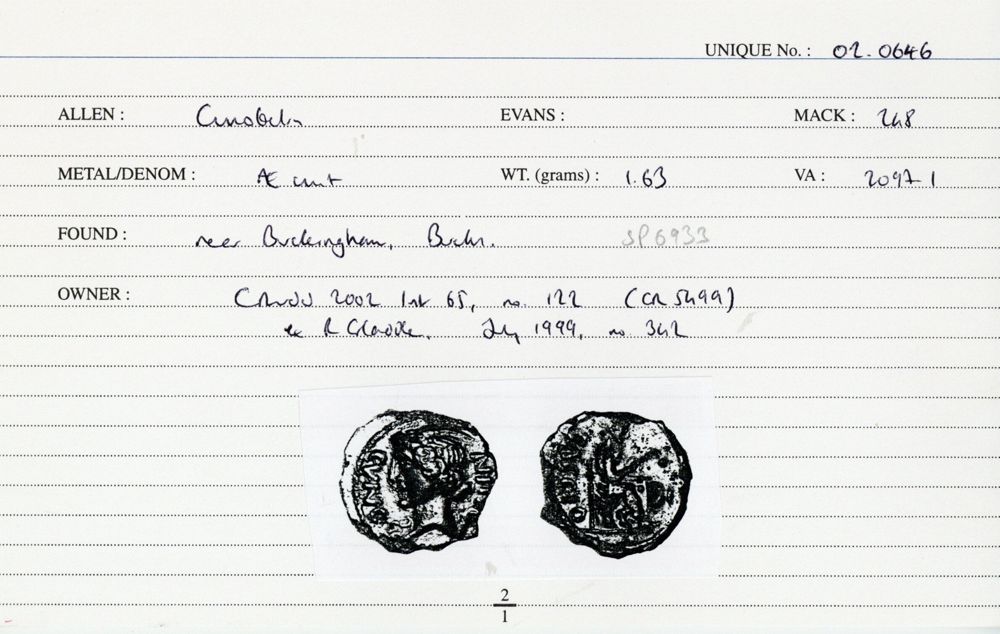 UNIQUE No. : 02.0646
ALLEN : Cunobelin EVANS : MACK : 248
METAL/DENOM : Æ unit WT. (grams) : 1.63 VA : 2097-1
FOUND : near Buckingham, Bucks. SP6933
OWNER : 2002 List 65, no. 122 (CR 5499)
ex R July 1999, no. 342
2
1